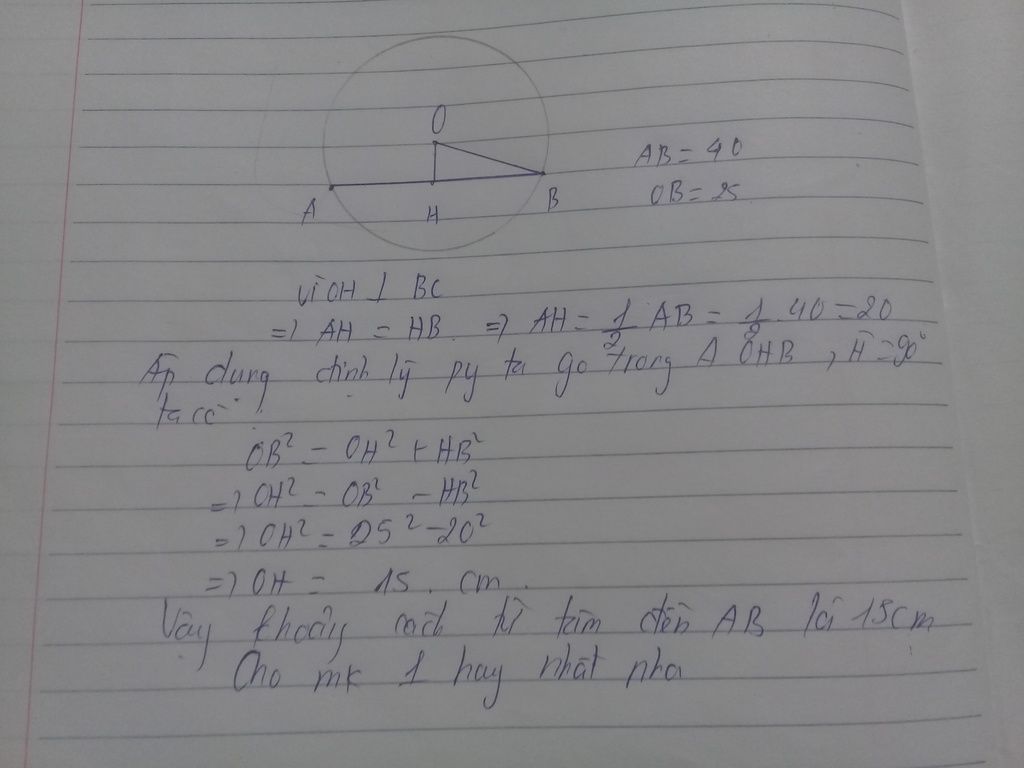 O
AB = 40
OB = 25
A
H
B
Vì OH ⊥ BC
=) AH = HB =) AH = 1/2 AB = 1/2 . 40 = 20
Áp dụng định lý py ta go trong Δ OHB, Ĥ = 90°
ta có :
OB² = OH² + HB²
=) OH² = OB² - HB²
=) OH² = 25² - 20²
=) OH = 15 . cm .
Vậy khoảng cách từ tâm đến AB là 15cm
Cho mk 1 hay nhất nha